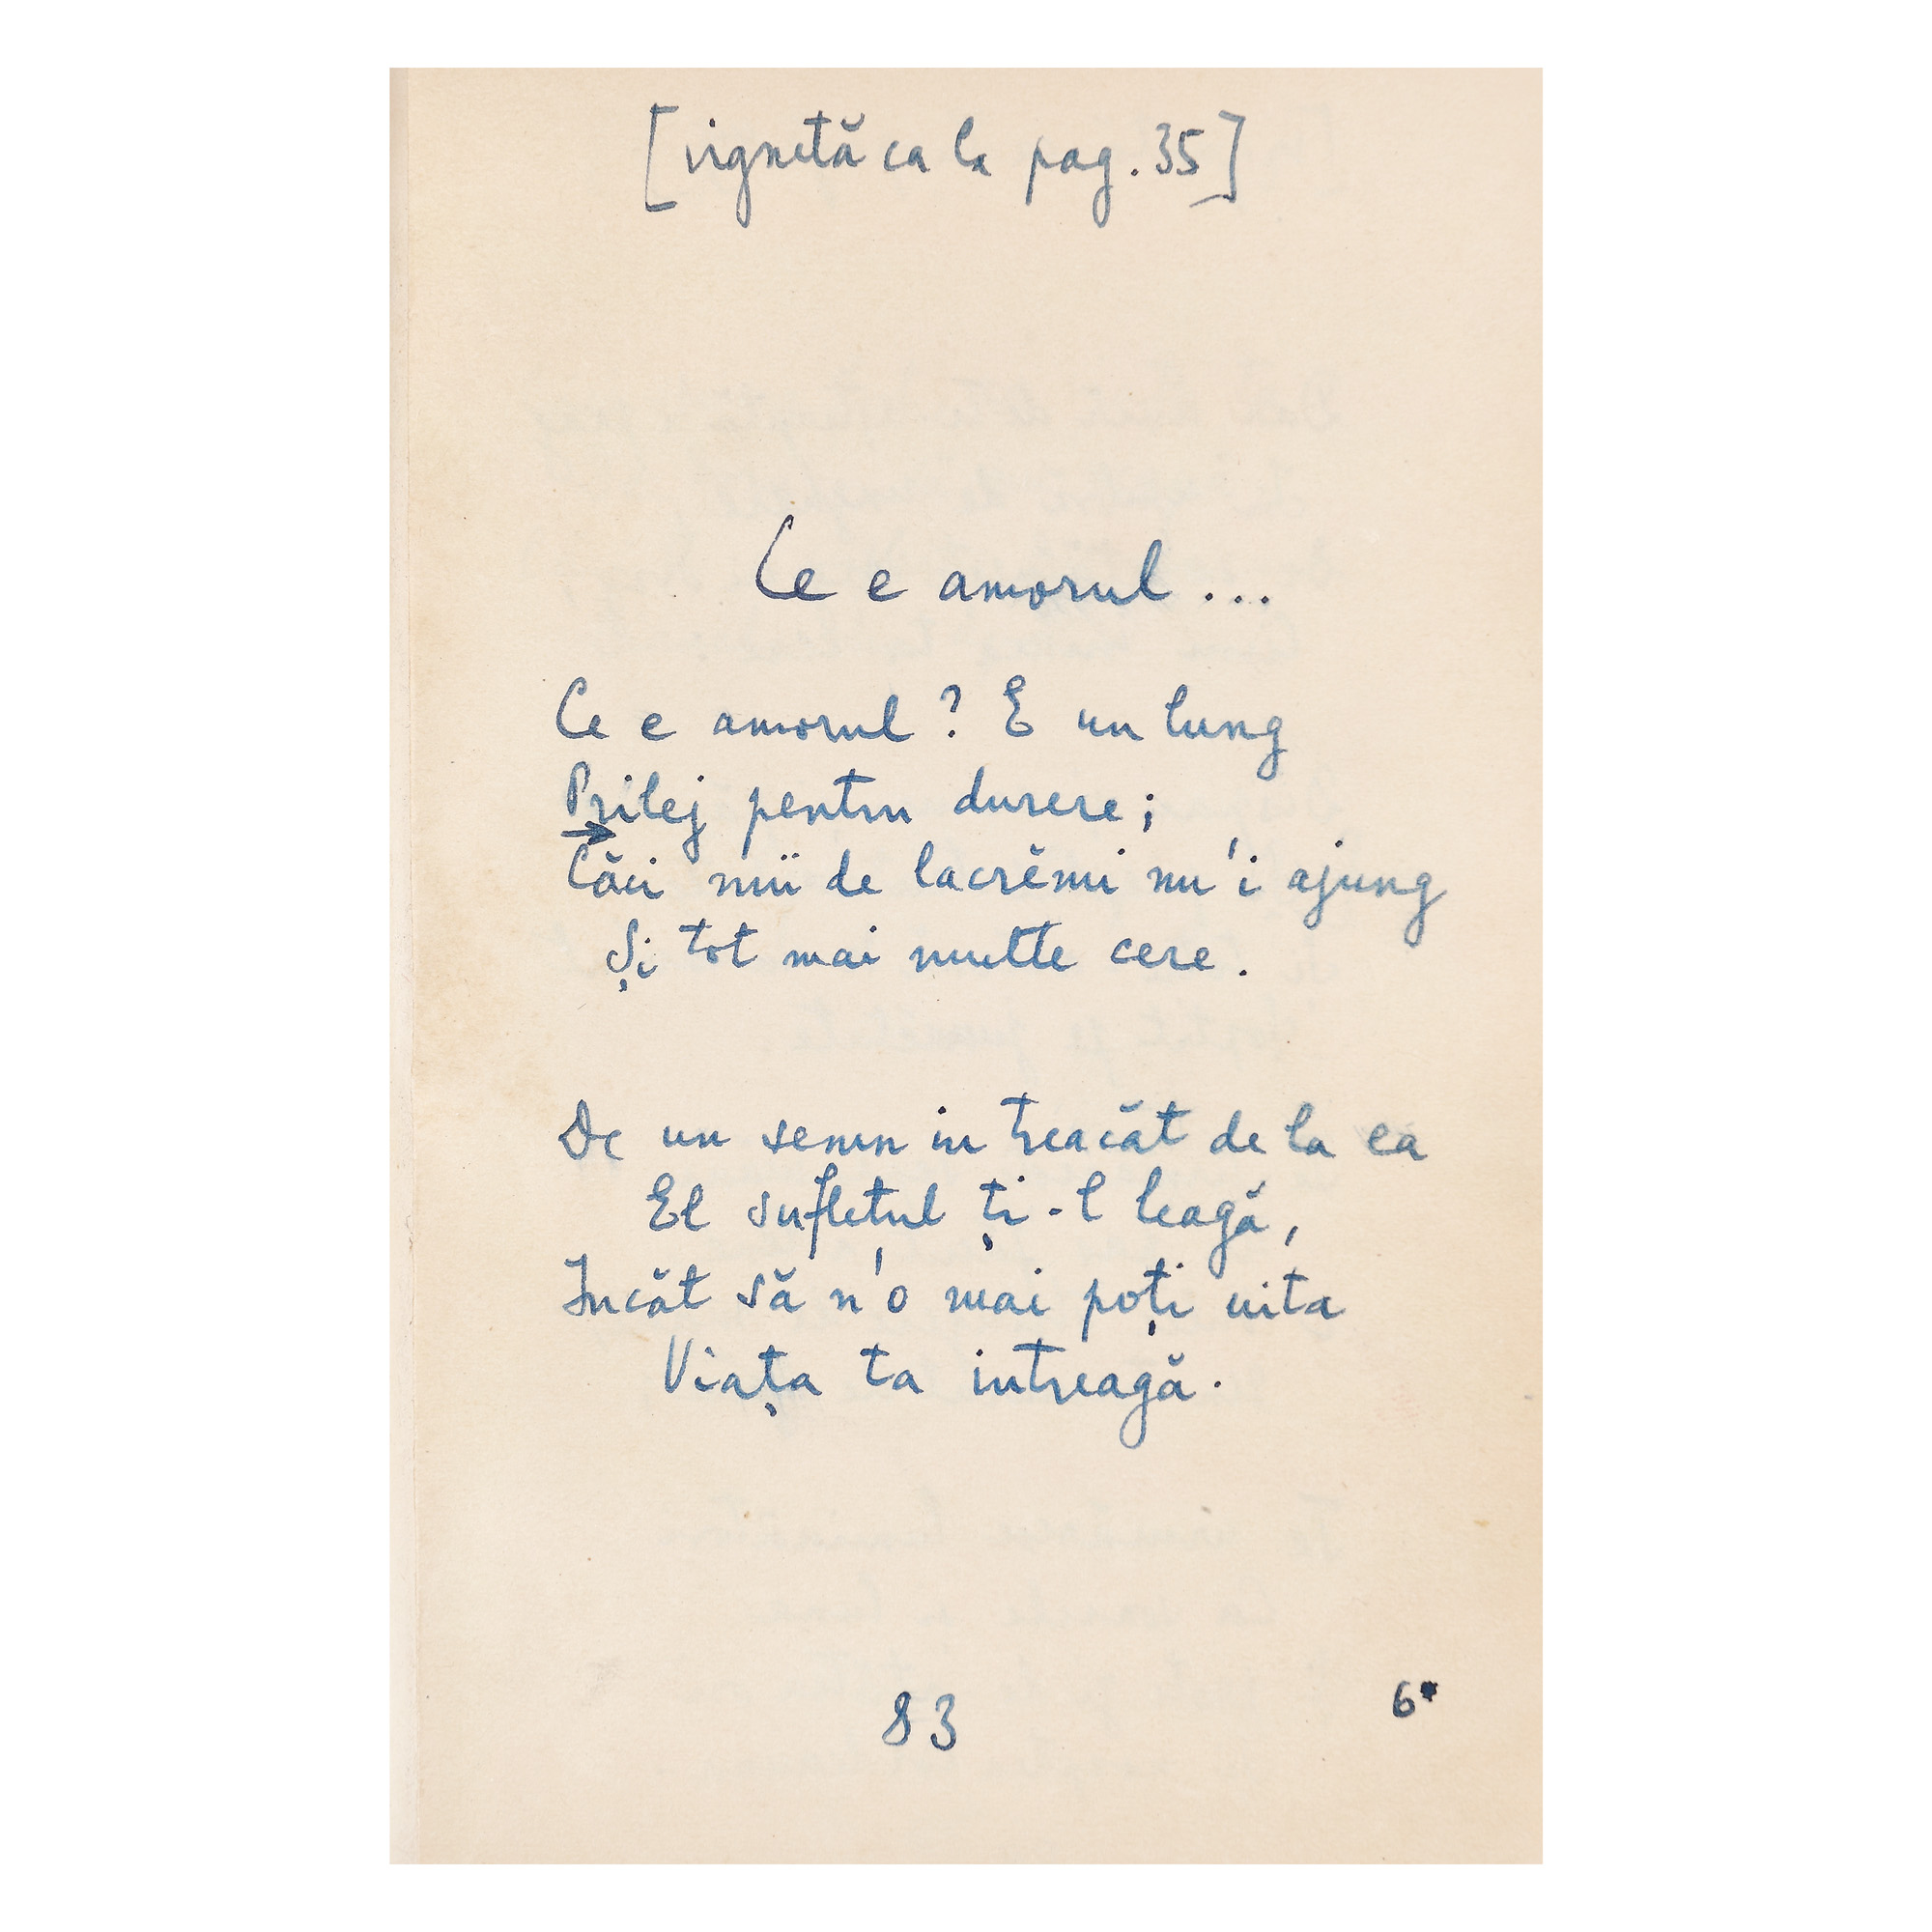 [vignetă ca la pag. 35]
Ce e amorul...
Ce e amorul? E un lung
Prilej pentru durere;
Căci mii de lacrěmi nu'i ajung
Și tot mai multe cere.
De un semn in treacăt de la ea
El sufletul ți-l leagă,
Incăt să n'o mai poți uita
Viața ta intreagă.
83
6*